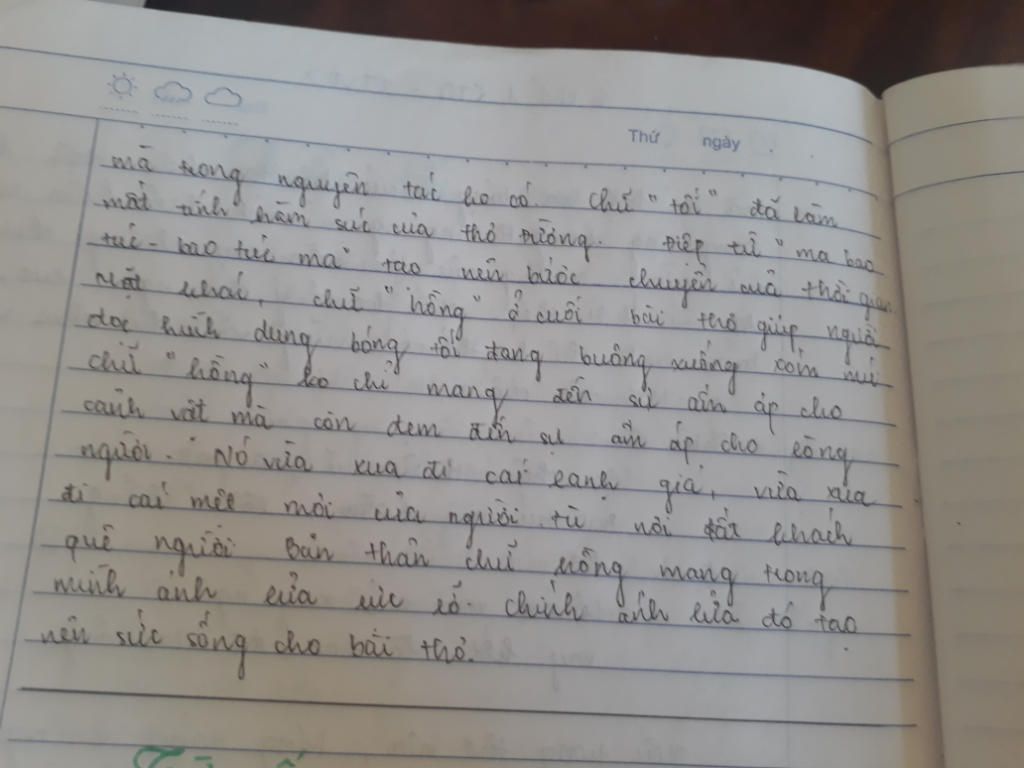 Thứ ngày
mà trong nguyên tác ko có. Chữ "tối" đã làm
mất tính hàm súc của thơ Đường. Điệp từ "ma bao
túc - bao túc ma" tạo nên bước chuyển của thời gian.
Mặt khác, chữ "hồng" ở cuối bài thơ giúp người
đọc hình dung bóng tối đang buông xuống xóm núi
chữ "hồng" ko chỉ mang đến sự ấm áp cho
cảnh vật mà còn đem đến sự ấm áp cho lòng
người. Nó vừa xua đi cái lạnh giá, vừa xua
đi cái mệt mỏi của người tù nơi đất khách
quê người Bản thân chữ hồng mang trong
mình ánh lửa rực rỡ. chính ánh lửa đó tạo
nên sức sống cho bài thơ.